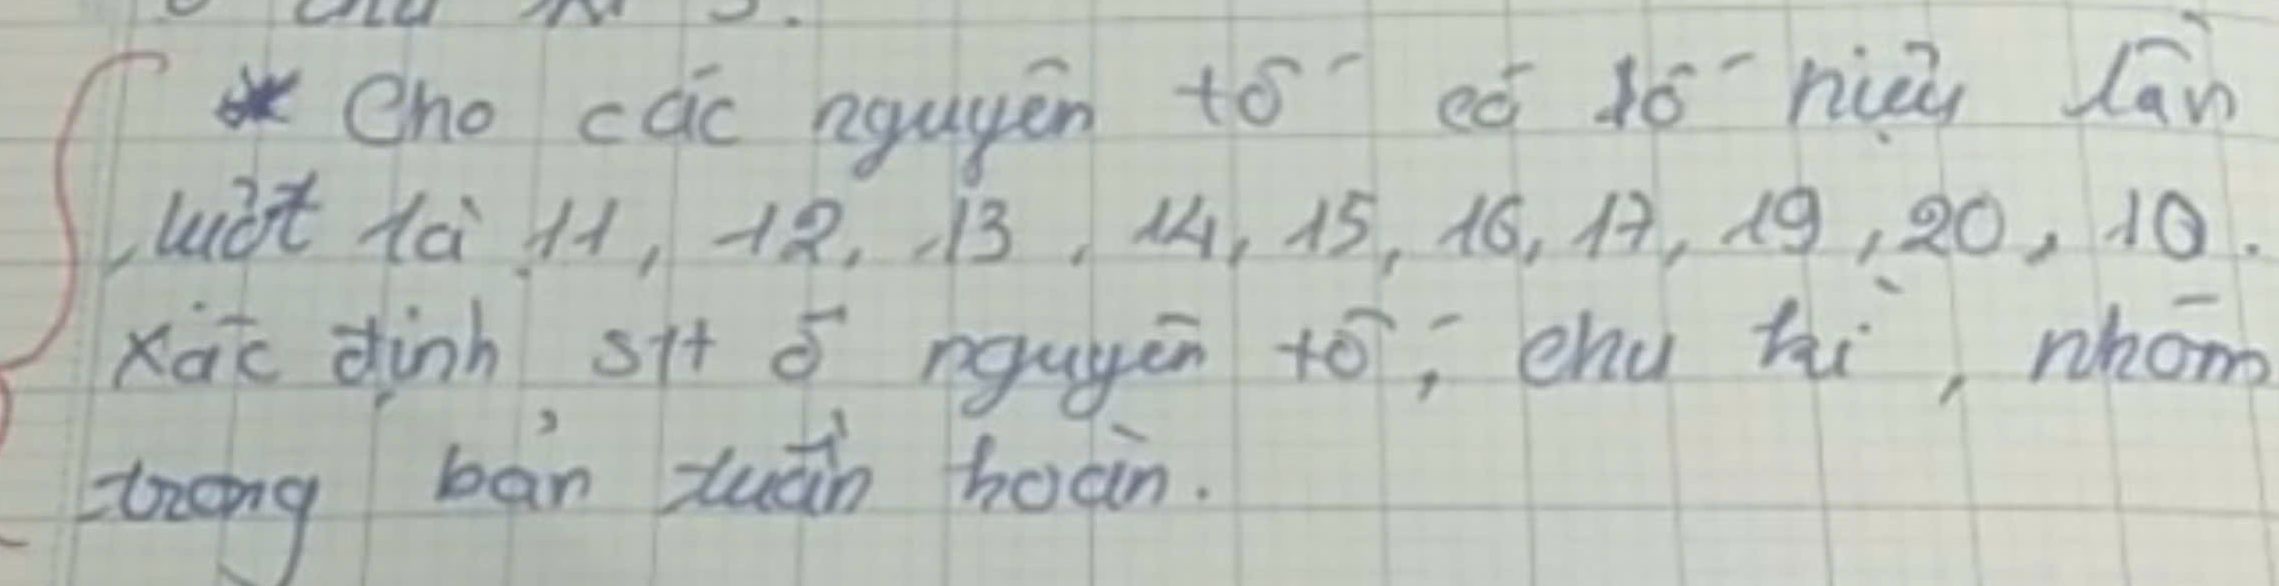 chu kì 3.
* Cho các nguyên tố có số hiệu lần
lượt là 11, 12, 13, 14, 15, 16, 17, 19, 20, 10.
Xác định stt ô nguyên tố, chu kì, nhóm
trong bản tuần hoàn.